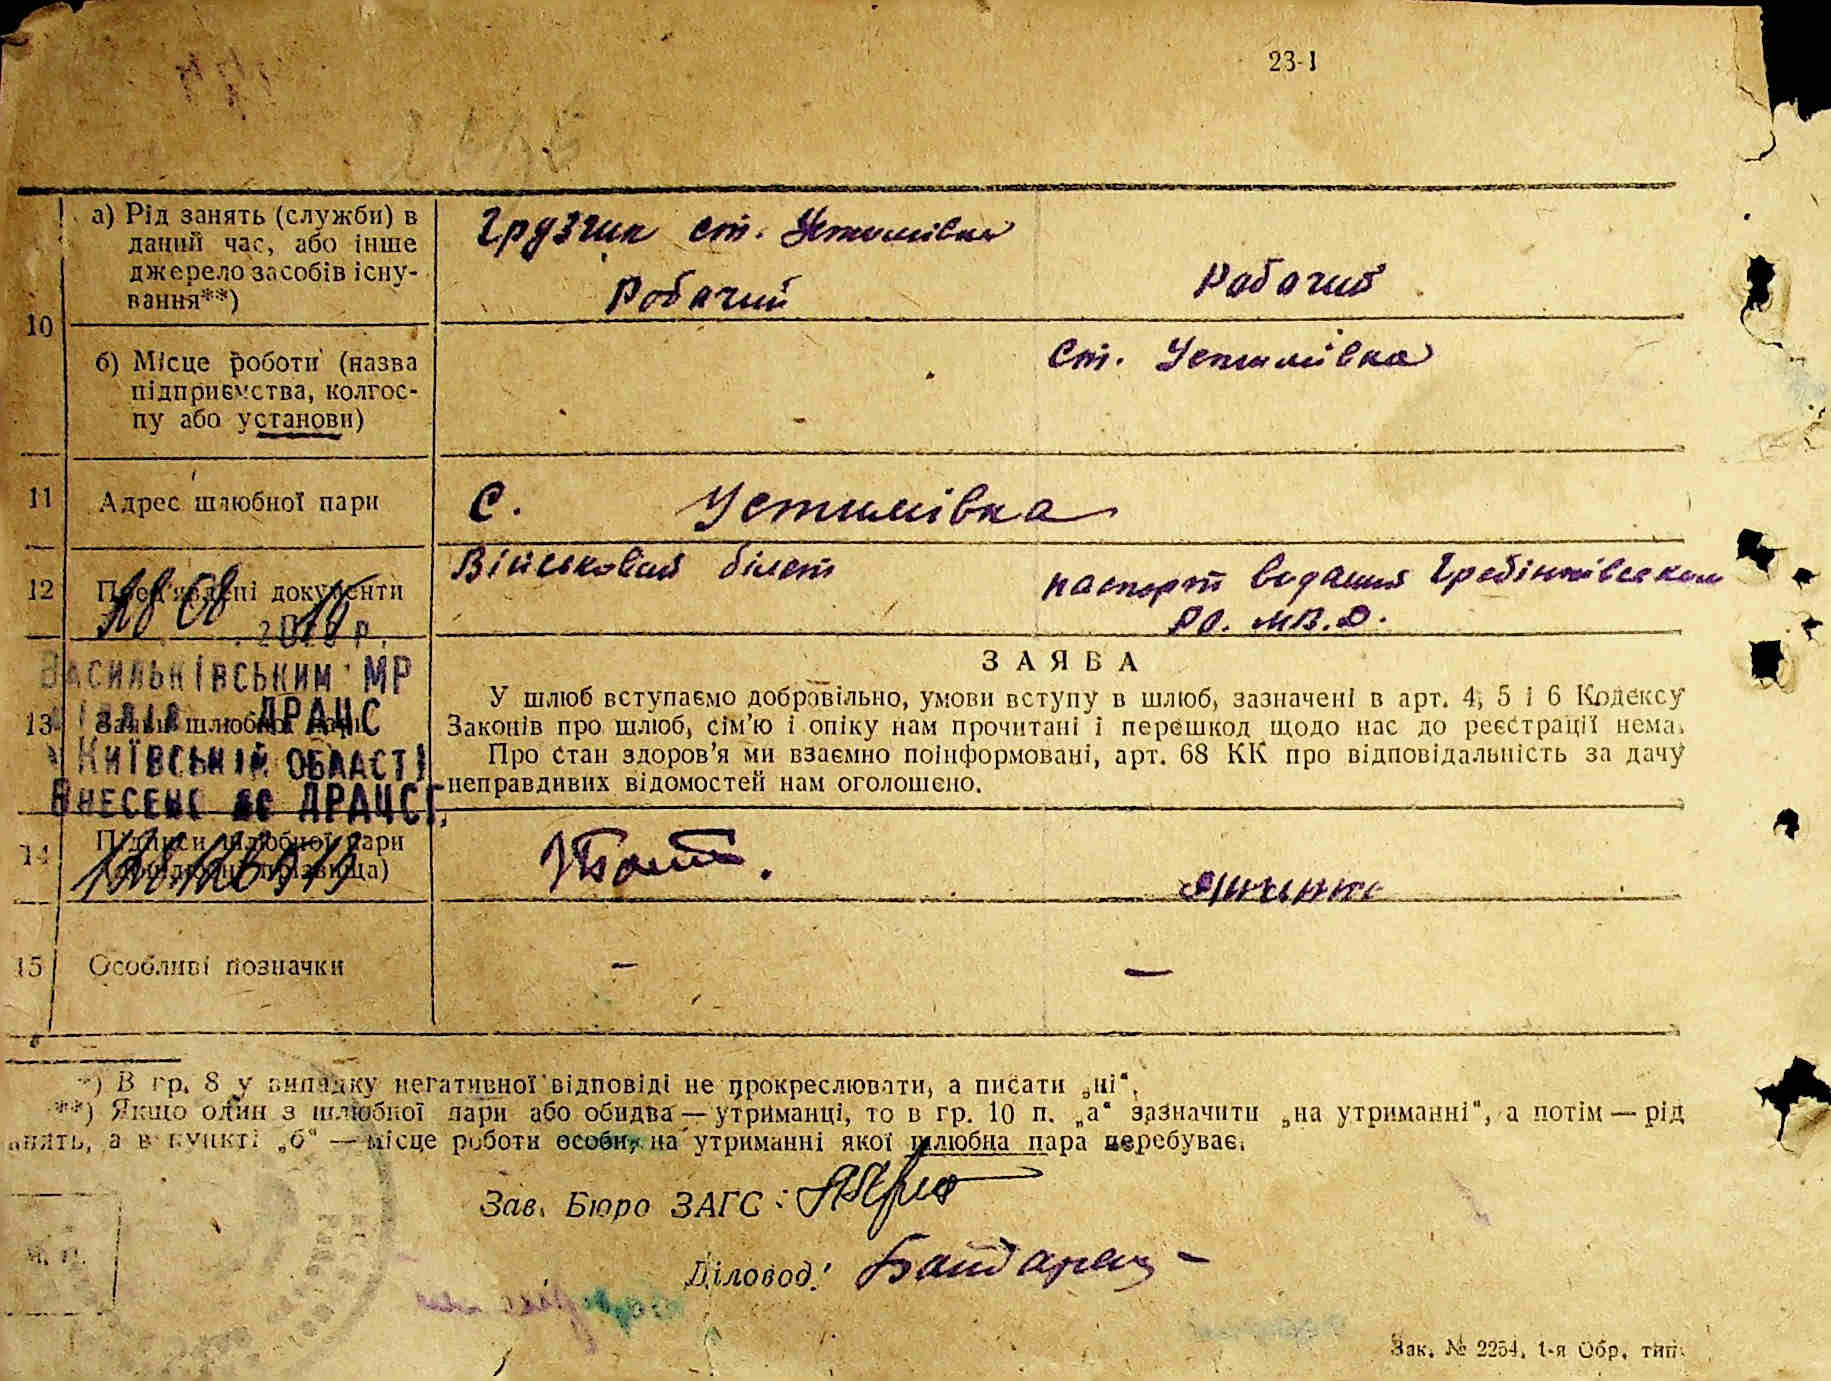 23-1
10
а) Рід занять (служби) в
даний час, або інше
джерело засобів існу-
вання**)
Грузчик ст. Устимівка
Робачий
Рабочий
б) Місце роботи (назва
підприємства, колгос-
пу або установи)
ст. Устимівка
11 Адрес шлюбної пари
с. Устимівка
12 Пред'явлені документи
Військовий білет
паспорт виданий Гребінківським
РО. МВ.Д.
28 08 2019 р.
Васильківським МР
ДРАЦС
Київській області
Внесено до ДРАЦСГ.
13 Заява шлюбної пари
ЗАЯВА
У шлюб вступаємо добровільно, умови вступу в шлюб, зазначені в арт. 4, 5 і 6 Кодексу
Законів про шлюб, сім'ю і опіку нам прочитані і перешкод щодо нас до реєстрації нема.
Про стан здоров'я ми взаємно поінформовані, арт. 68 КК про відповідальність за дачу
неправдивих відомостей нам оголошено.
14 Підписи шлюбної пари
прізвища)
15 Особливі позначки
–
–
*) В гр. 8 у випадку негативної відповіді не прокреслювати, а писати „ні“.
**) Якщо один з шлюбної пари або обидва — утриманці, то в гр. 10 п. „а“ зазначити „на утриманні“, а потім — рід
занять, а в пункті „б“ — місце роботи особи, на утриманні якої шлюбна пара перебуває.
Зав. Бюро ЗАГС:
Діловод:
М. П.
Зак. № 2254. 1-я Обр. тип.